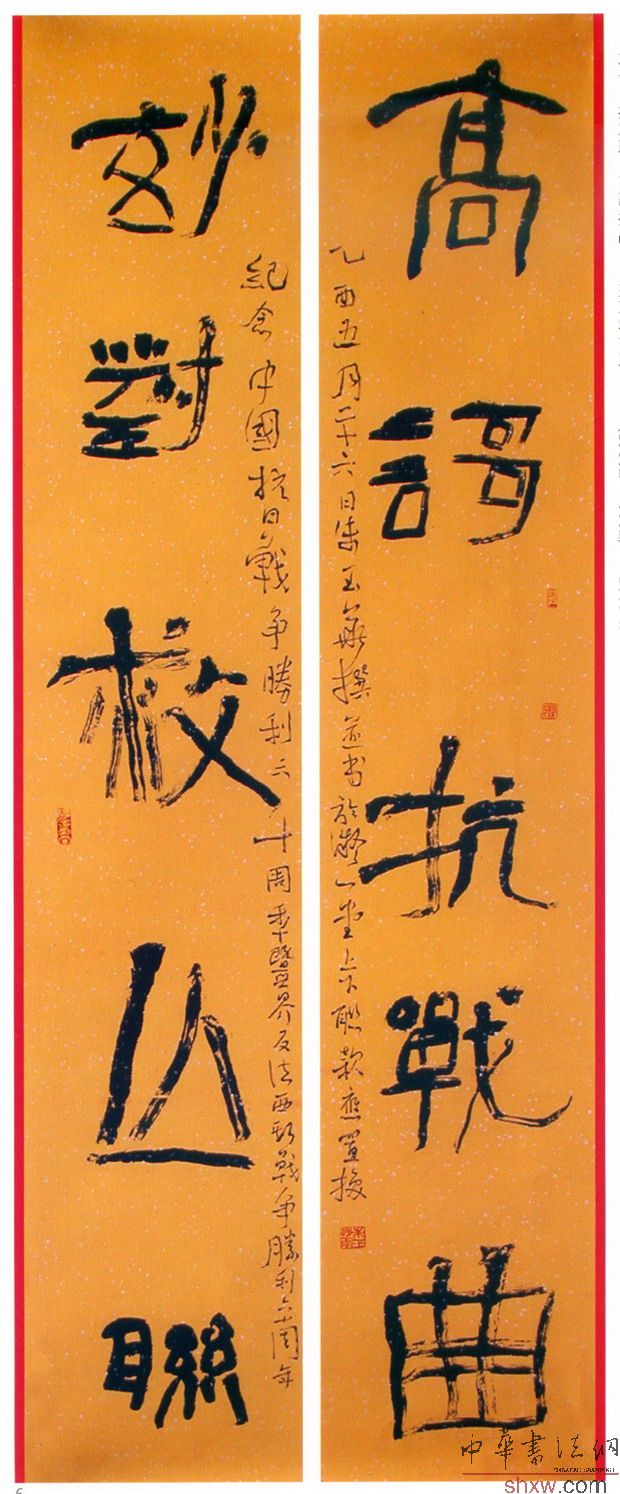 高謌抗戰曲
乙酉五月二十六日朱玉撰並書於凝一堂上下聯款應置換
妙對救亾聯
紀念中國抗日戰争勝利六十周年暨世界反法西斯戰争勝利六十周年
中華書法網
shxw.com
6